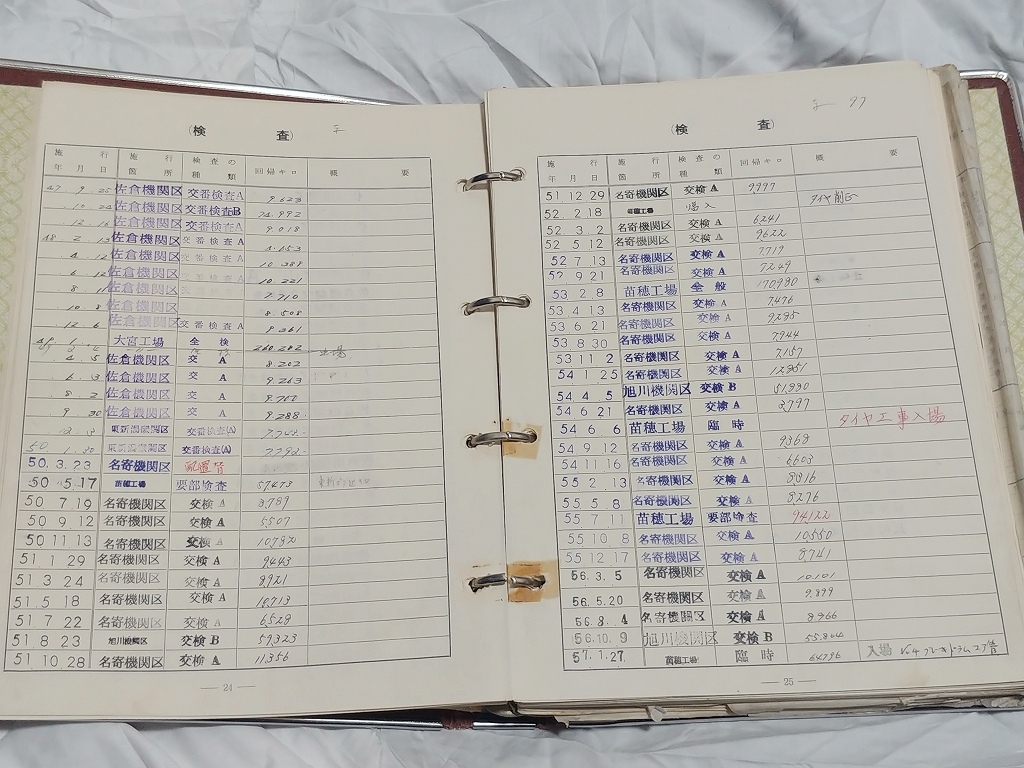 (検 査)
施行年月日 施行箇所 検査の種類 回帰キロ 概要
47. 9. 25 佐倉機関区 交番検査A 9.623
10. 24 佐倉機関区 交番検査B 74.992
12. 16 佐倉機関区 交番検査A 9.018
48. 2. 佐倉機関区 交番検査A
4. 12 佐倉機関区 交番検査A 10.389
6. 12 佐倉機関区 10.221
8. 11 佐倉機関区 7.710
10. 8 佐倉機関区 8.508
12. 6 佐倉機関区 交番検査A 9.261
49. 1. 大宮工場 全検 260.282
4. 5 佐倉機関区 交A 8.202
6. 3 佐倉機関区 交A 9.263
8. 2 佐倉機関区 交A 9.700
9. 30 佐倉機関区 交A 9.288
東新潟機関区 交番検査(A)
50 1. 30 東新潟機関区 交番検査(A)
50. 3. 23 名寄機関区 配置替
50 5. 17 苗穂工場 要部検査 57473
50 7 19 名寄機関区 交検A 8,789
50 9. 12 名寄機関区 交検A 5507
50 11 13 名寄機関区 交検A 10,782
51. 1 29 名寄機関区 交検A 9443
51. 3 24 名寄機関区 交検A 8,921
51. 5 18 名寄機関区 交検A 10,713
51 7 22 名寄機関区 交検A 6528
51. 8 23 旭川機関区 交検B 59,323
51. 10. 28 名寄機関区 交検A 11356
— 24 —
(検 査)
施行年月日 施行箇所 検査の種類 回帰キロ 概要
51. 12. 29 名寄機関区 交検A 9,997
52. 2. 18 苗穂工場 入 タイヤ削正
52. 3. 2 名寄機関区 交検A 6241
52 5. 12 名寄機関区 交検A 9622
52 7. 13 名寄機関区 交検A 7,719
52. 9 21 名寄機関区 交検A 7,249
53 2 8 苗穂工場 全般 170,980
53 4. 13 名寄機関区 交検A 7,476
53 6 21 名寄機関区 交検A 9,295
53 8 30 名寄機関区 交検A 7,944
53. 11 2 名寄機関区 交検A 7,157
54 1 25 名寄機関区 交検A 12,851
54 4 5 旭川機関区 交検B 51,990
54 6 21 名寄機関区 交検A 8,797
54 6 6 苗穂工場 臨時 タイヤ工事入場
54 9 12 名寄機関区 交検A 9368
54 11 16 名寄機関区 交検A 6603
55 2 13 名寄機関区 交検A 8816
55 5 8 名寄機関区 交検A 8276
55 7 11 苗穂工場 要部検査 94,122
55 10 8 名寄機関区 交検A 10,550
55 12 17 名寄機関区 交検A 8,741
56. 3. 5 名寄機関区 交検A 10.101
56. 5. 20 名寄機関区 交検A 9,899
56. 8. 4 名寄機関区 交検A 8,966
56. 10. 9 旭川機関区 交検B 55.864
57. 1. 27 苗穂工場 臨時 64,796 入場
— 25 —